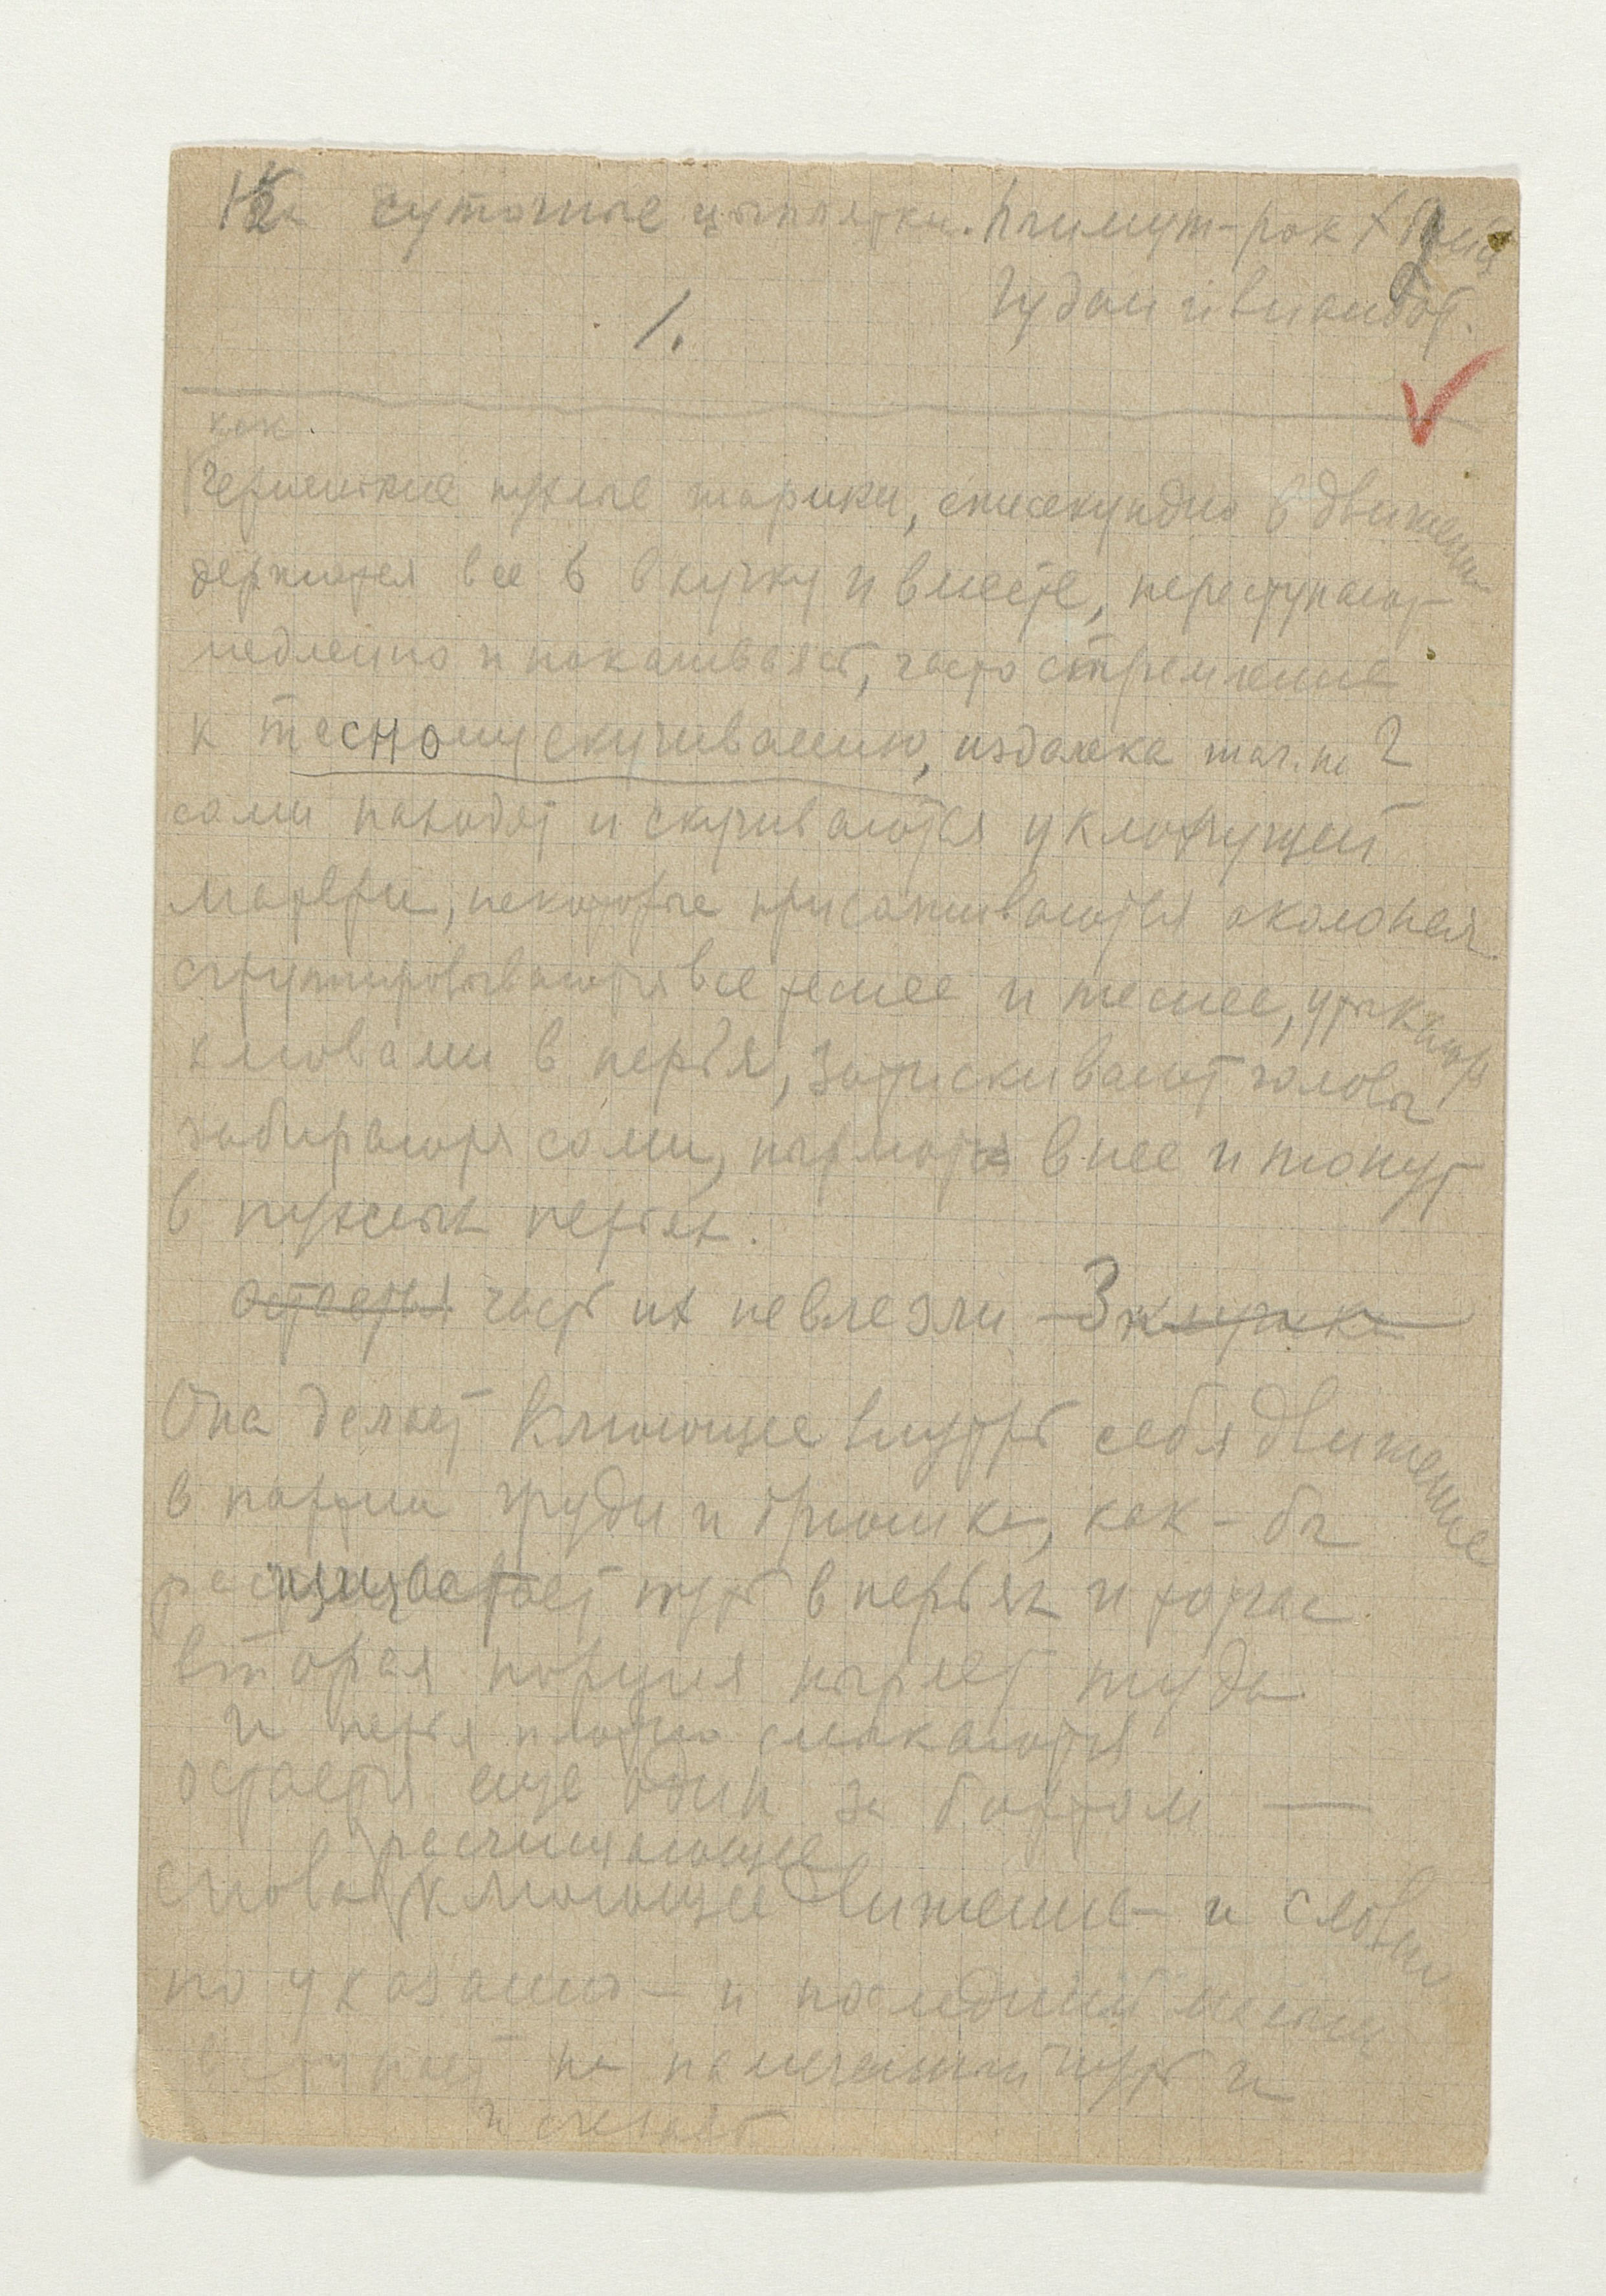 суточные цыплятки. Плимут-рок +
Гудан и виандот.
1.
как
Черненькие пухлые шарики, ежесекундно в движении
держатся все в в кучку и вместе, переступают
медленно и покачиваясь, часто стремление
к тесному скучиванию, издалека
сами находят и скучиваются у клохчущей
матери, некоторые присаживаются около нея
сгруппировываются все теснее и теснее, утыкаются
клювами в перья, затискивают головы
забираются сами, ныряют в нее и тонут
в пухлых перьях.
остается часть их не влезли
Она делает клюющее внутрь себя движение
в партии груди и брюшка, как-бы
расчищает путь в перьях и тотчас
вторая порция ныряет туда
и перья плотно смыкаются
остается еще один за бортом —
расчищающее
снова клюющее движение — и словно
по указанию — и последний малыш
вступает на намеченный путь и
исчезает